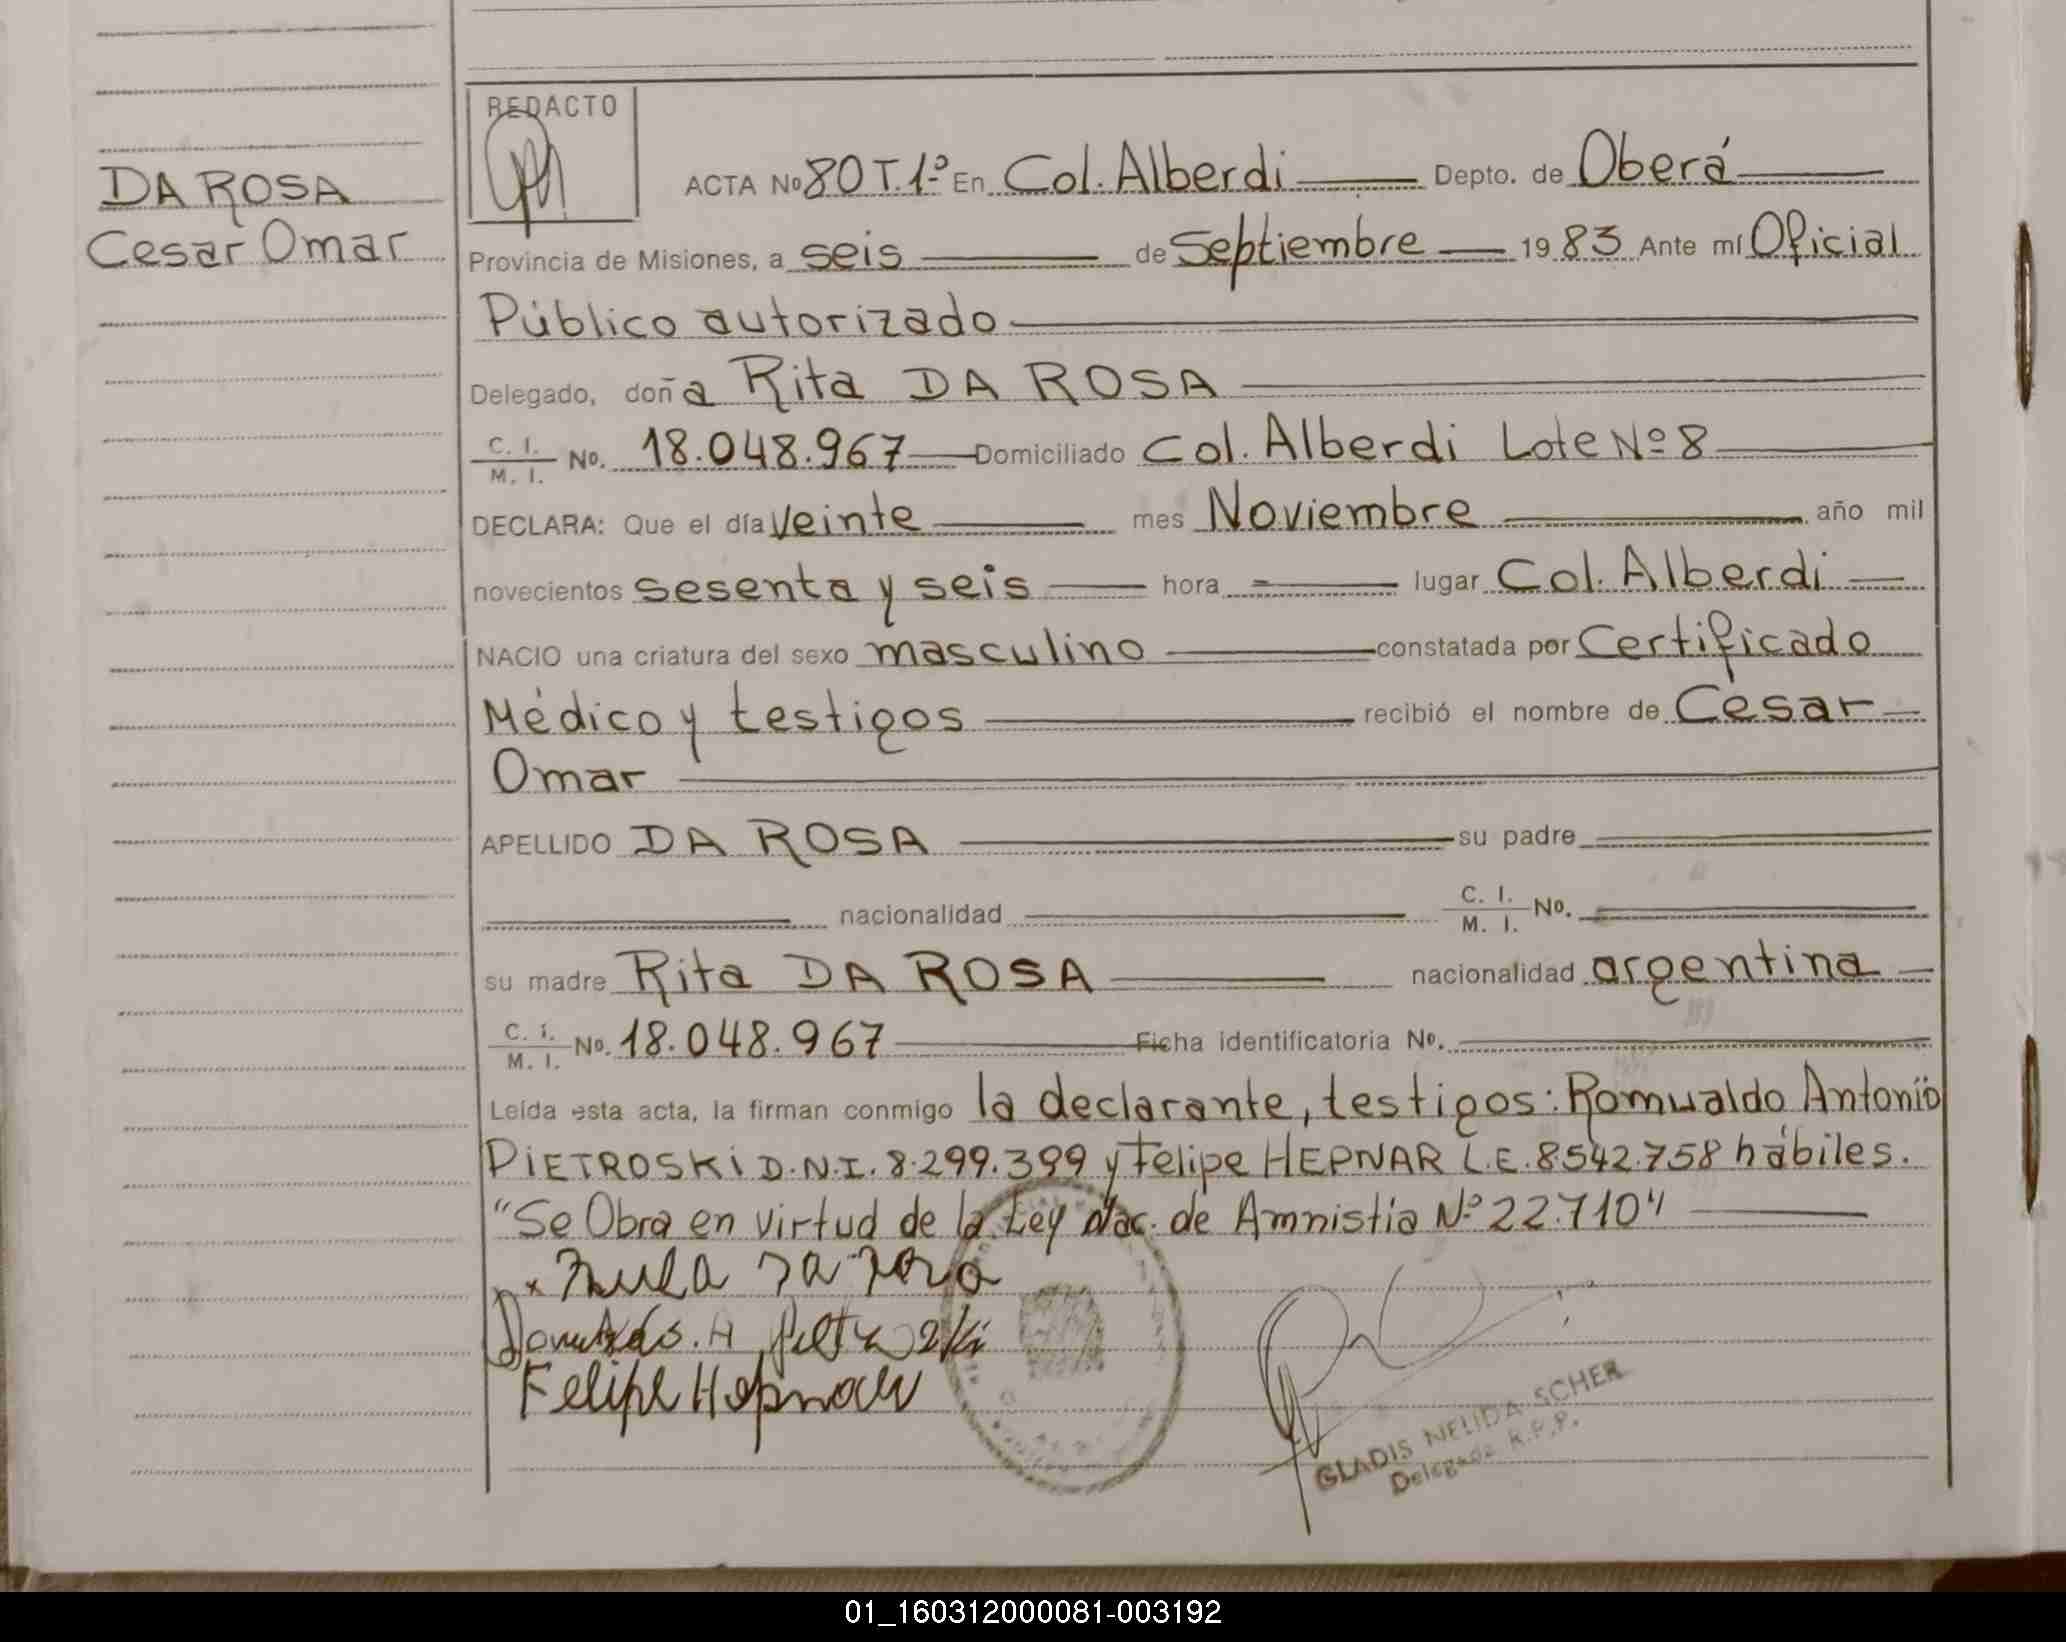 DA ROSA
Cesar Omar
REDACTO
ACTA No 80 T.1º En Col. Alberdi Depto. de Oberá
Provincia de Misiones, a seis de Septiembre 19 83 Ante mí Oficial
Público autorizado
Delegado, doña Rita DA ROSA
C. I. / M. I. No. 18.048.967 Domiciliado Col. Alberdi Lote Nº 8
DECLARA: Que el día veinte mes Noviembre año mil
novecientos sesenta y seis hora lugar Col. Alberdi
NACIO una criatura del sexo masculino constatada por Certificado
Médico y testigos recibió el nombre de Cesar
Omar
APELLIDO DA ROSA su padre
nacionalidad C. I. / M. I. No.
su madre Rita DA ROSA nacionalidad argentina
C. I. / M. I. No. 18.048.967 Ficha identificatoria No.
Leída esta acta, la firman conmigo la declarante, testigos: Romualdo Antonio
PIETROSKI D.N.I. 8.299.399 y Felipe HEPNAR L.E. 8.542.758 hábiles.
"Se Obra en virtud de la Ley Nac. de Amnistia Nº 22.710"
Felipe Hepnar
GLADIS NELIDA SCHER
Delegada R.P.P.
01_160312000081-003192